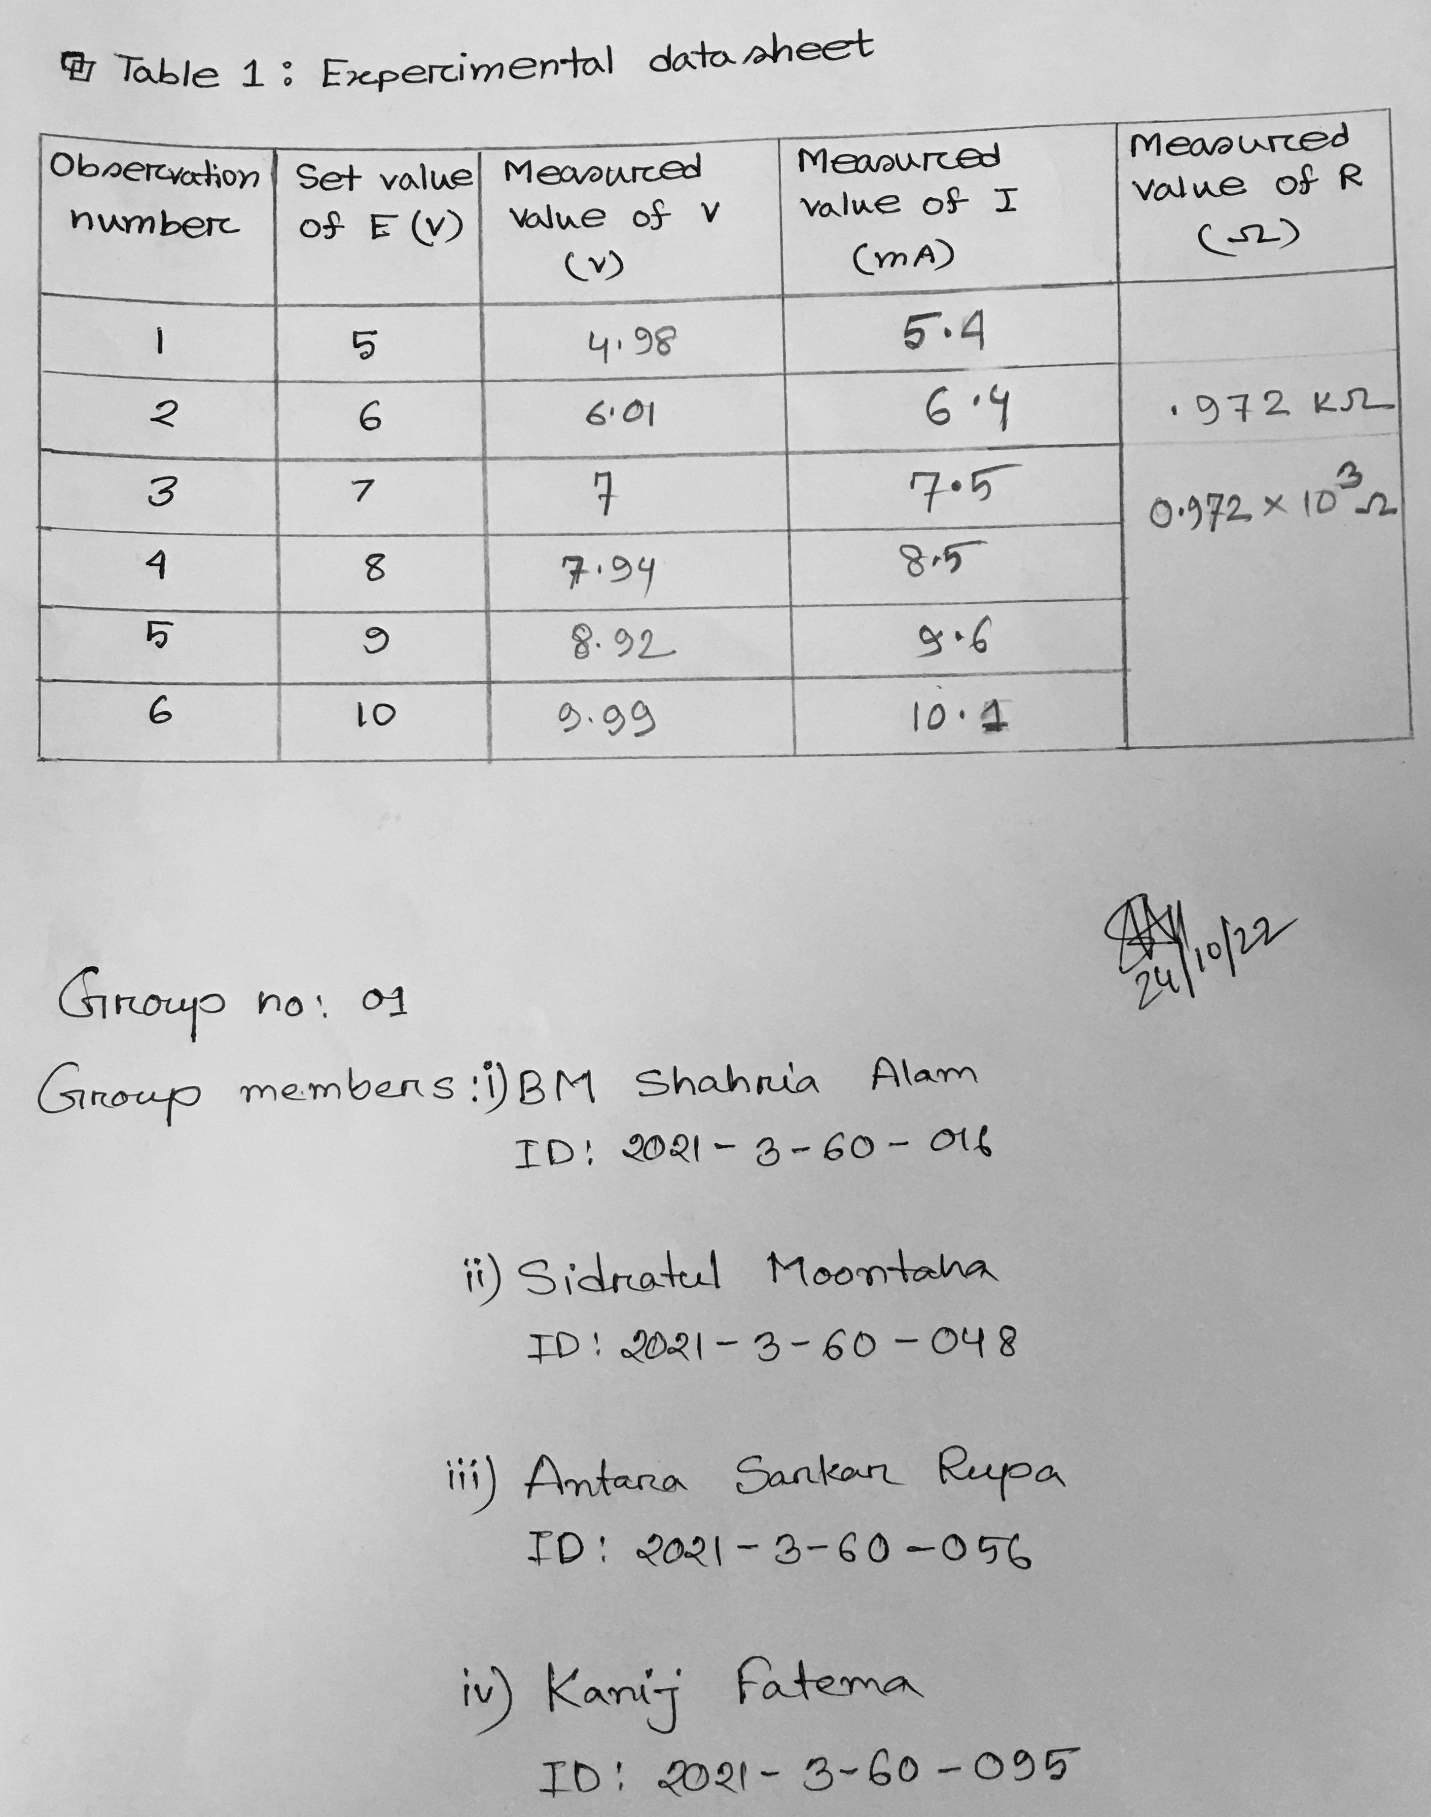 Table 1 : Experimental datasheet
Observation number | Set value of E (V) | Measured value of V (V) | Measured value of I (mA) | Measured value of R (Ω)
1 | 5 | 4.98 | 5.4
2 | 6 | 6.01 | 6.4 | .972 KΩ
3 | 7 | 7 | 7.5 | 0.972 × 10³ Ω
4 | 8 | 7.94 | 8.5
5 | 9 | 8.92 | 9.6
6 | 10 | 9.99 | 10.1
24/10/22
Group no: 01
Group members : i) BM Shahria Alam
ID: 2021-3-60-016
ii) Sidratul Moontaha
ID: 2021-3-60-048
iii) Antara Sarkar Rupa
ID: 2021-3-60-056
iv) Kanij Fatema
ID: 2021-3-60-095